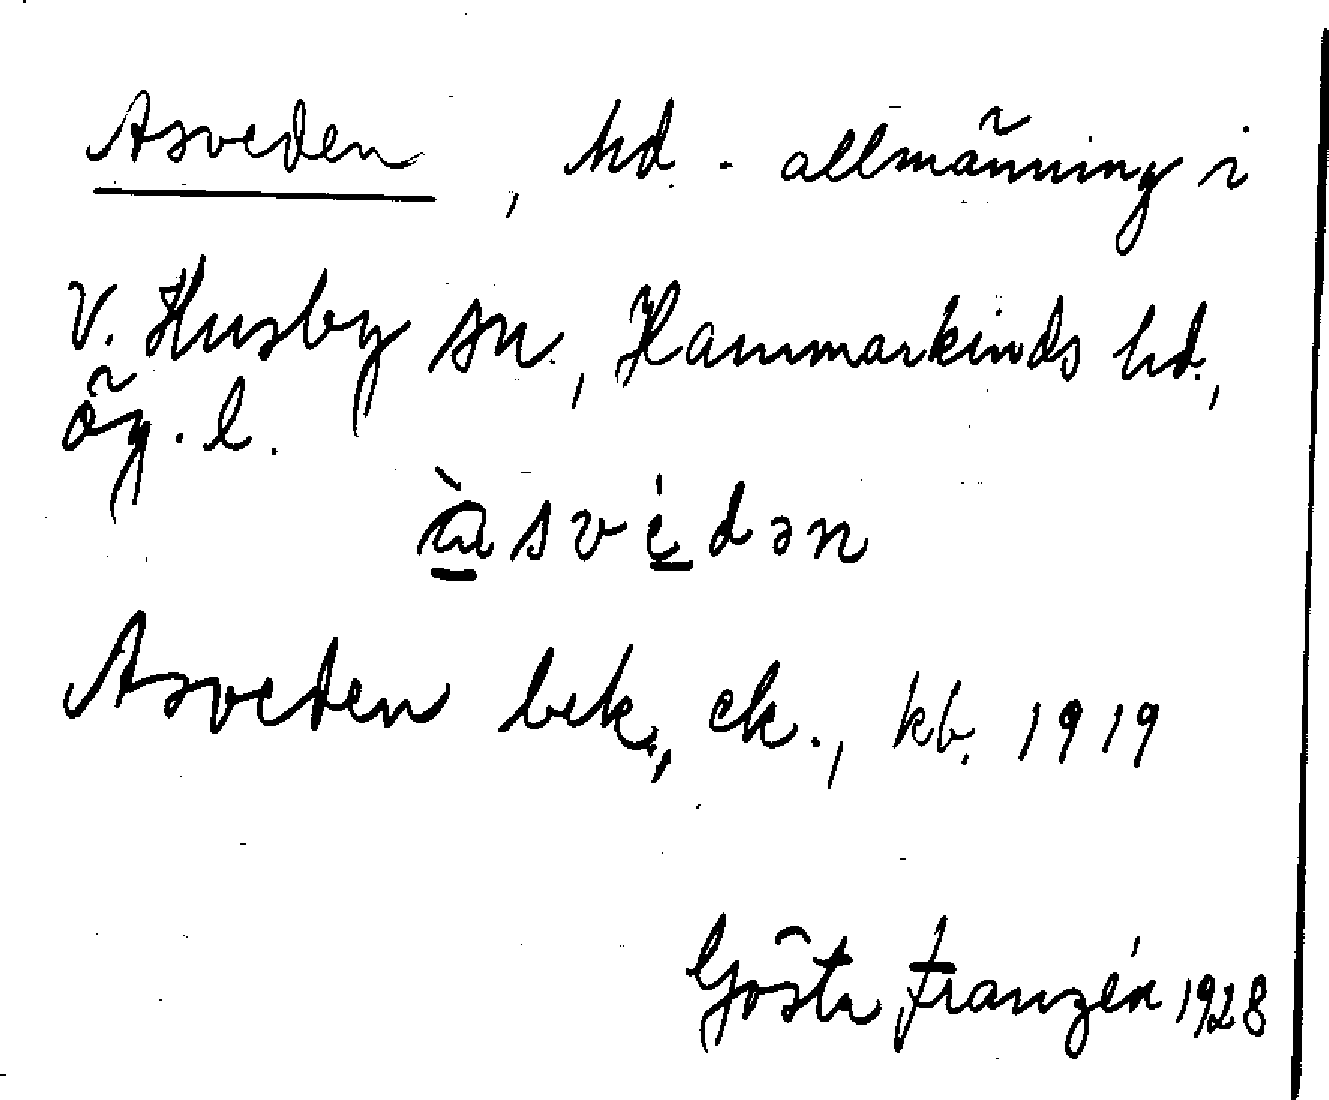 Asveden, hd.-allmänning i
V. Husby sn., Hammarkinds hd.,
ög. l.
ɑ̠̀svė̠dən
Asveden bek., ek., kb. 1919
Gösta Franzén 1928